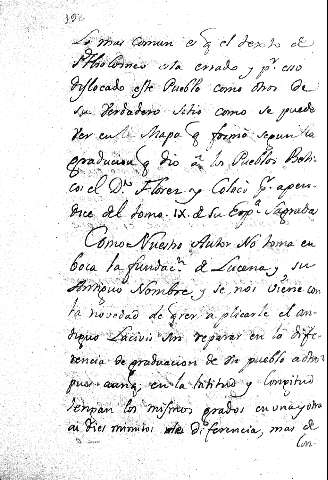 Lo mas comun es q el texto de
Ptholomeo esta errado y pr. eso
dislocado este Pueblo como otros de
su verdadero sitio como se puede
ver en el Mapa q formó segun la
graduacion q dio a los Pueblos Beti
cos el Dr. Florez y colocó pr. apen
dice del tomo. IX. de su Espa. Sagrada
Como Nuestro Autor No toma en
boca la fundacn. de Lucena y su
Antiguo Nombre, y se nos viene con
la novedad de qrer aplicarle el an
tiguo Lacivis sin reparar en la dife
rencia de graduacion de un pueblo a otro
pues aunq en la latitud y longitud
tengan los mismos grados en una y otra
ai dies minutos de diferencia, mas de